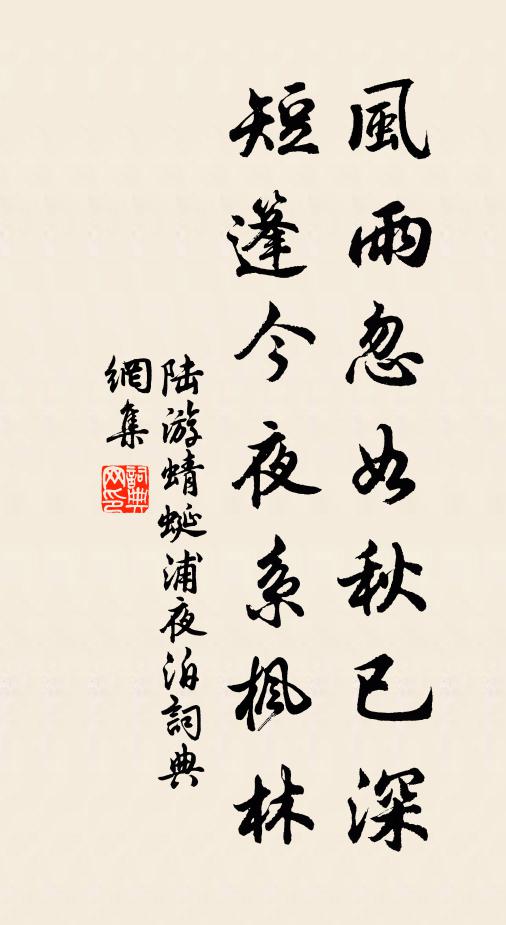 風雨忽如秋已深
短蓬今夜系楓林
陆游蜻蜓浦夜泊詞典
網集
詞典网印